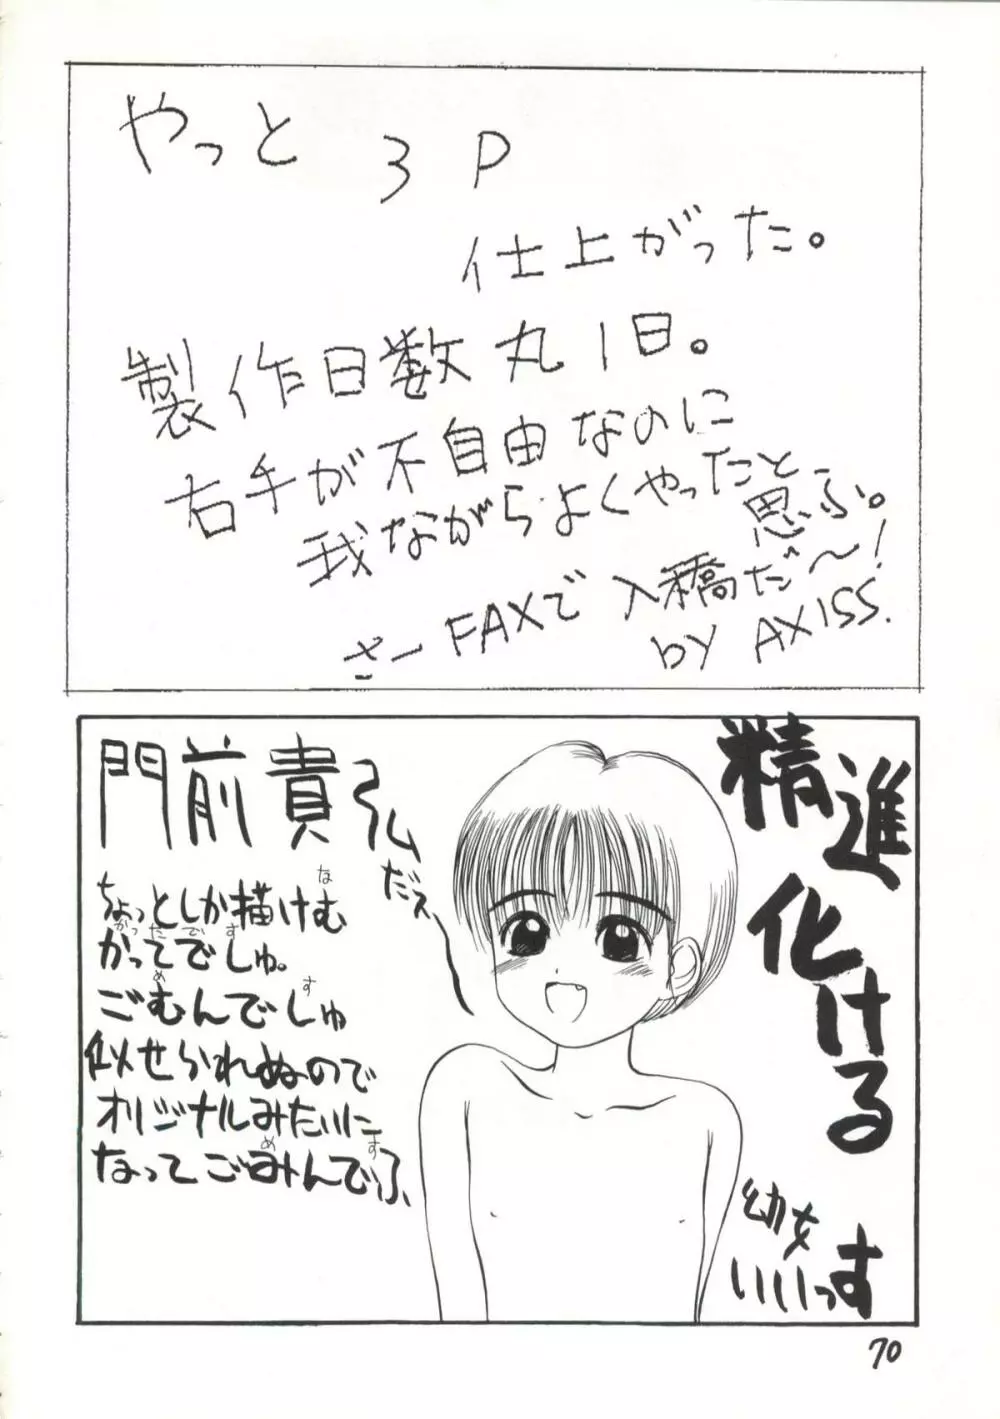 やっと 3P
仕上がった。
製作日数丸1日。
右手が不自由なのに
我ながらよくやったと
思ふ。
さーFAXで入稿だ〜!
by AXISS.
門前貴弘
だぇ
ちょっとしか描けむ
かってでしゅ。
ごむんでしゅ
似せられぬので
オリジナルみたいに
なってごみんでふ
精進
化ける
70